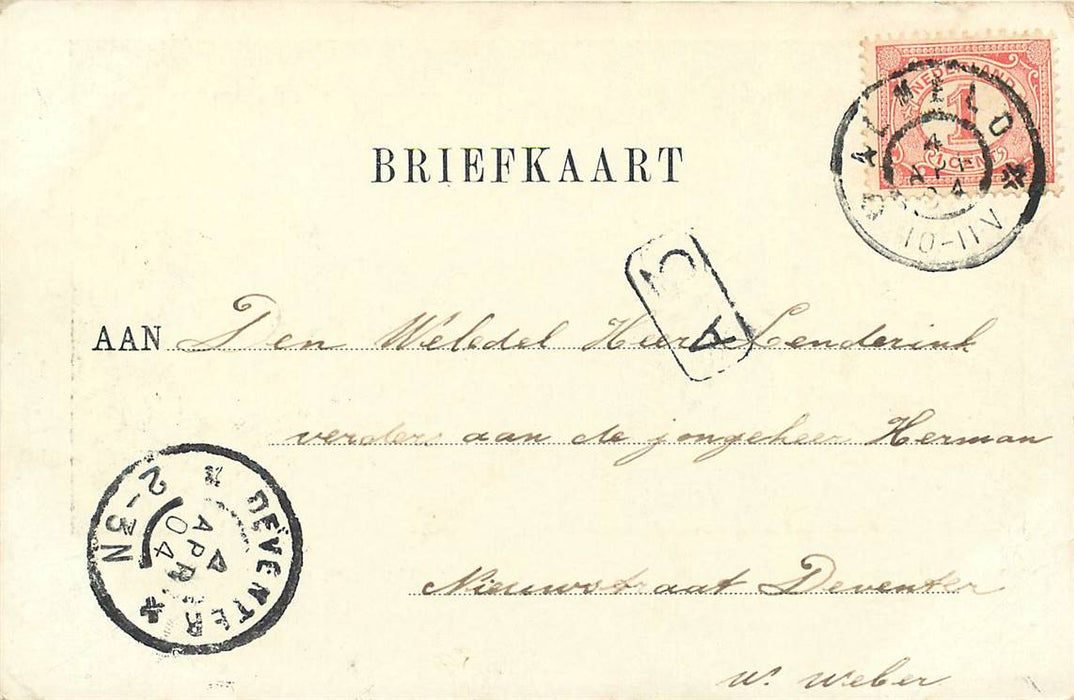 NEDERLAND
1
CENT
ALMELO
4 APR 04
10-11V
BRIEFKAART
A 5
AAN Den Weledel Heer Lenderink
verders aan de jongeheer Herman
Nieuwstraat Deventer
W. Weber
DEVENTER
4 APR 04
2-3N